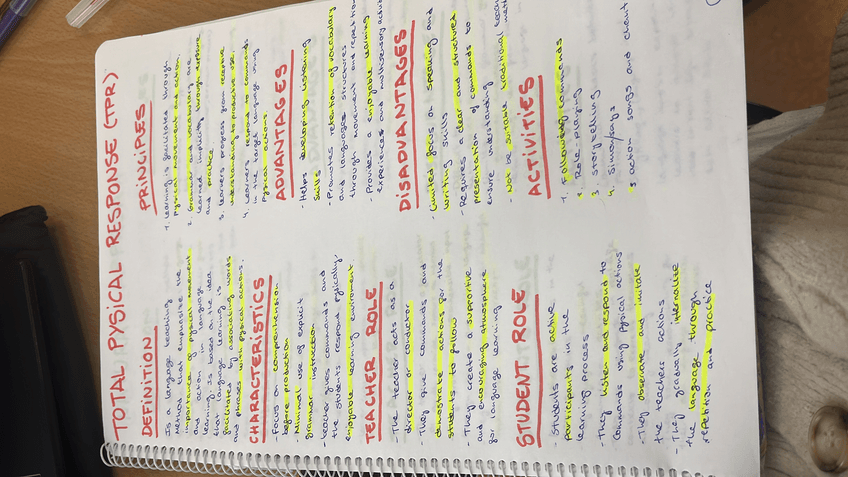 TOTAL PYSICAL RESPONSE (TPR)
DEFINITION
Is a language teaching
method that emphasize the
importance of pysical movement
and action in language
learning. Is based on the idea
that language learning is
facilitated by associating words
and phrases with pysical actions.
CHARACTERISTICS
- Focus on comprehension
before production
- Minimal use of explicit
grammar instruction
- teacher gives commands and
the students respond pysically.
- enjoyable learning enviroment
TEACHER ROLE
- The teacher acts as a
director or conductor
- They give commands and
demostrate actions for the
students to follow
- They create a supportive
and encouraging atmosphere
for language learning
STUDENT ROLE
- Students are active
participants in the
learning process
- They listen and respond to
commands using pysical actions
- They observe and imitate
the teachers actions
- They gradually internalize
the language through
repetition and practice
PRINCIPLES
1. Learning is facilitated through
pysical movement and action.
2. Grammar and vocabulary are
learned implicitly through exposure
and practice
3. learners progress from receptive
understanding to productive use.
4. Learners respond to commands
in the target language using
pysical actions.
ADVANTAGES
- Helps developing listening
skills
- Promotes retention of vocabulary
and languages structures
through movement and repetition
- Provides a enjoyable learning
experiences and multisensory
DISADVANTAGES
- Limited focus on speaking and
writing skills
- Requires a clear and structured
presentation of commands to
ensure understanding
- Not be suitable traditional
ACTIVITIES
1. Following commands
2. Role-playing
3. storytelling
4. Simon says
5 action songs and chant